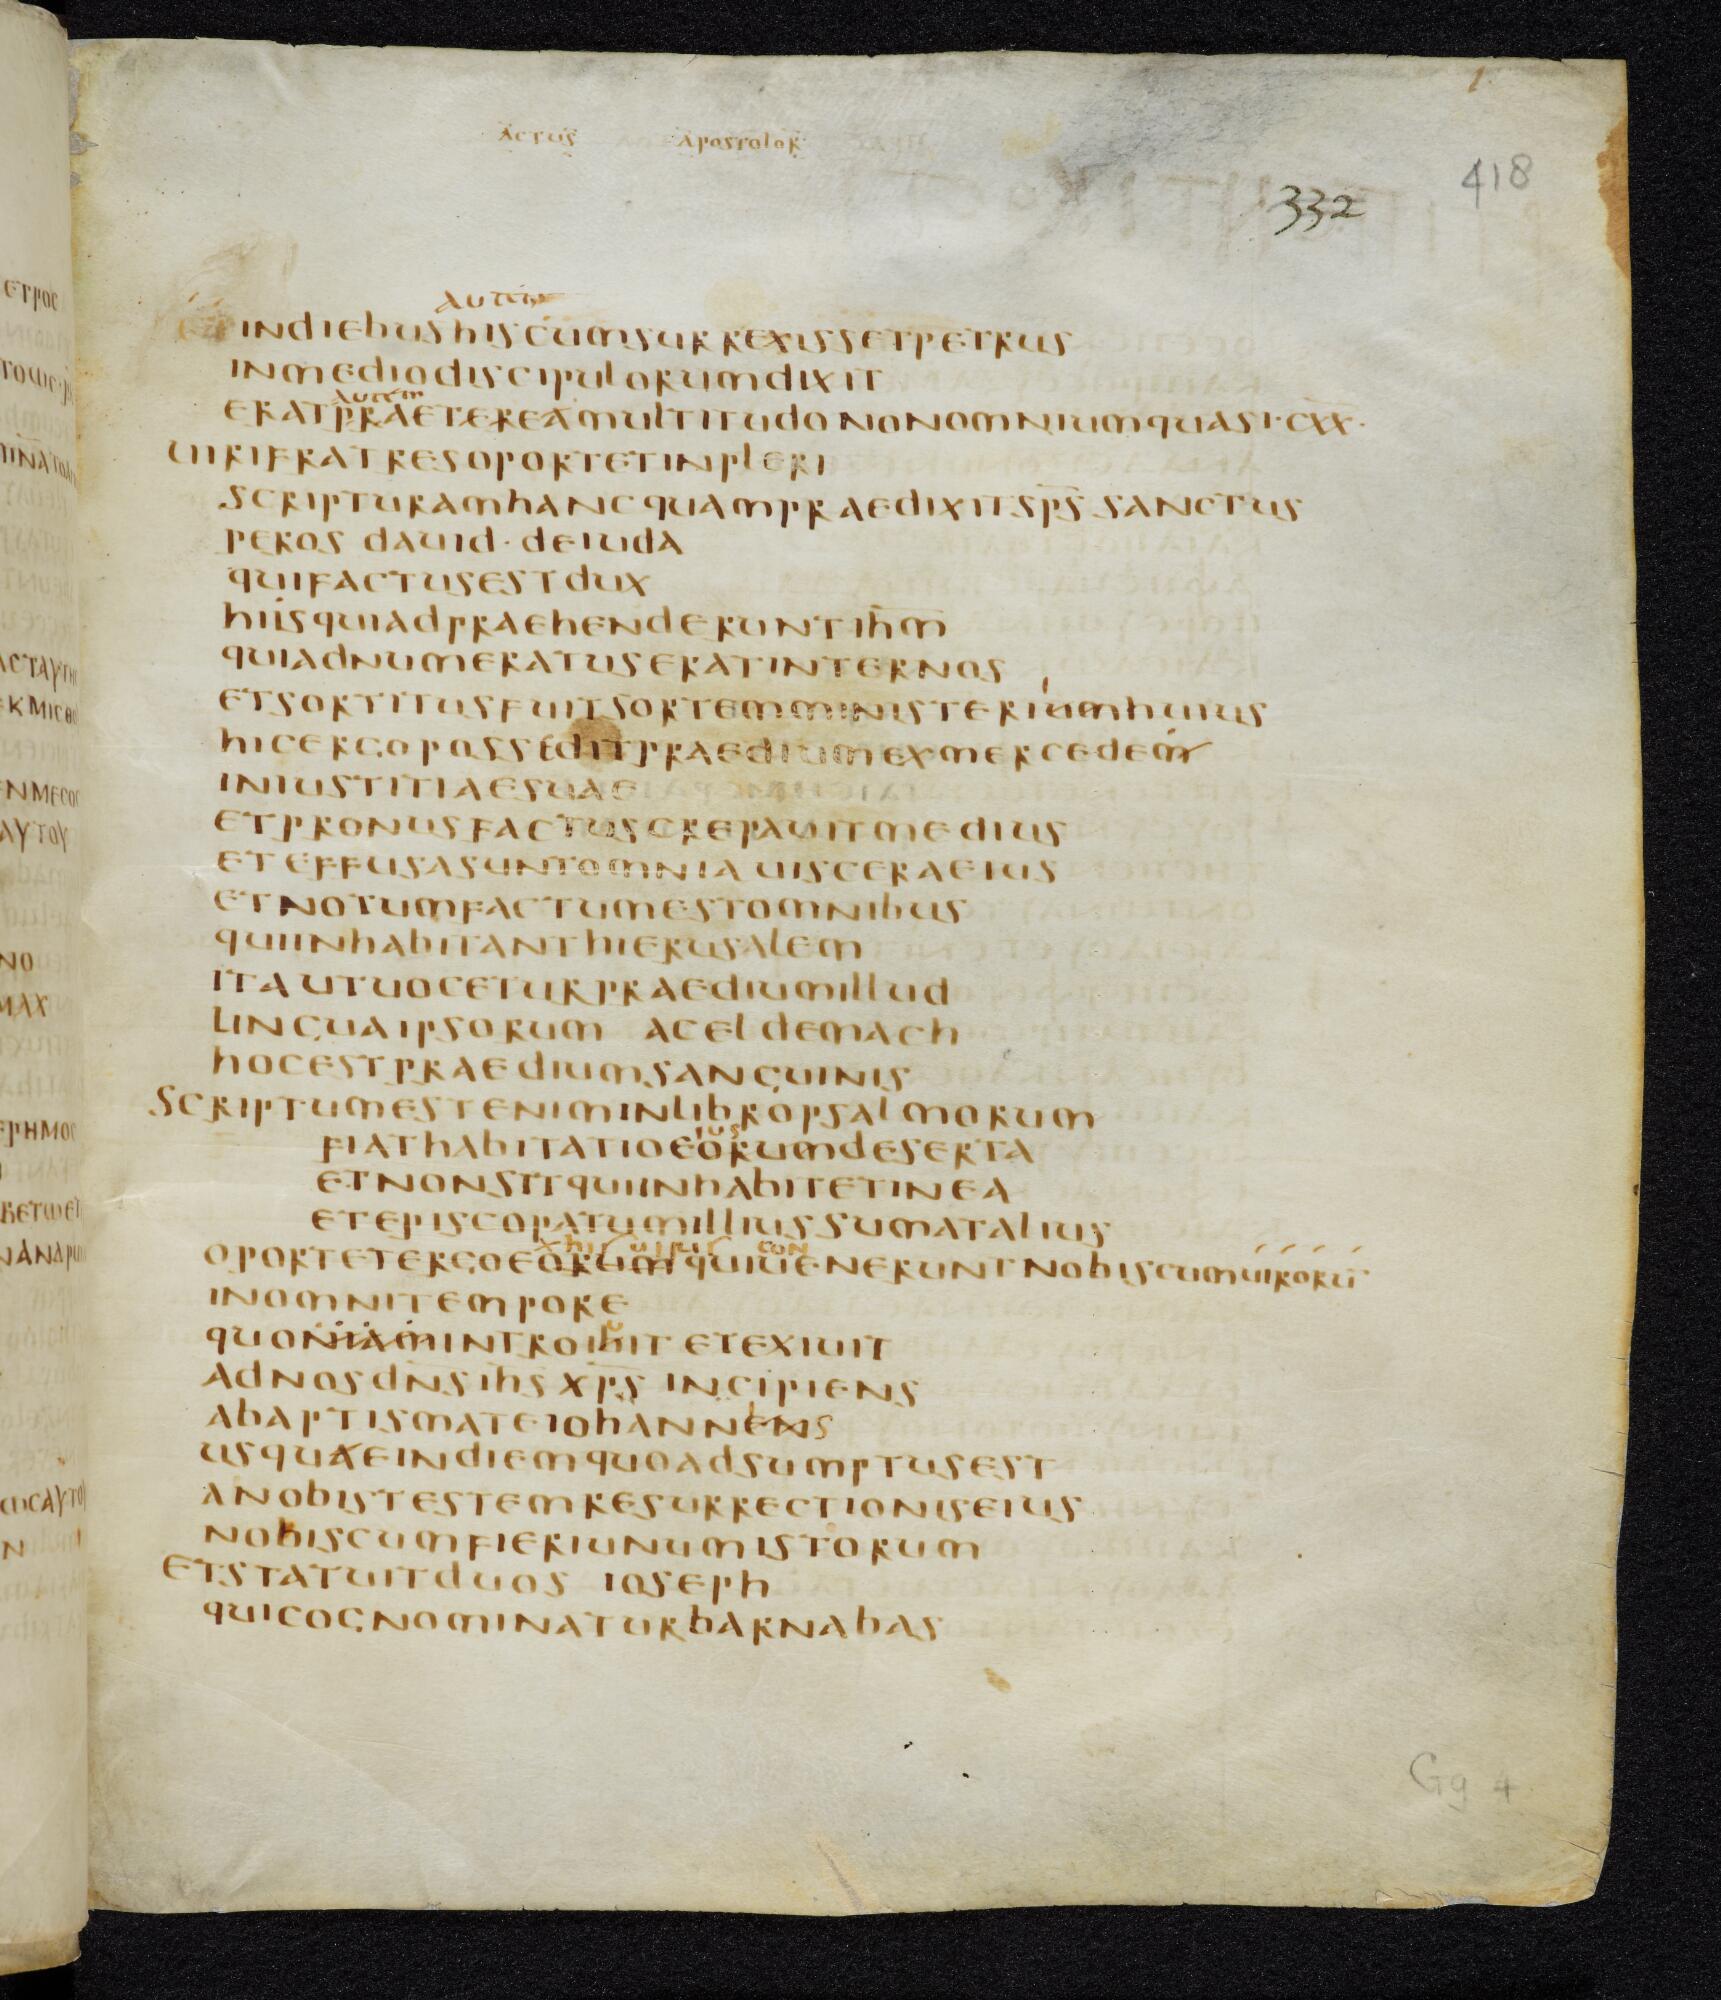 ACTUS APOSTOLOR
418
332
AUTEM
INDIEBUSHISCUMSURREXISSETPETRUS
INMEDIODISCIPULORUMDIXIT
AUTEM
ERATPRAETEREAMULTITUDONONOMNIUMQUASI·CXX·
UIRIFRATRESOPORTETINPLERI
SCRIPTURAMHANCQUAMPRAEDIXITSPS̅ SANCTUS
PEROS DAUID·DEIUDA
QUIFACTUSESTDUX
HIISQUIADPRAEHENDERUNTIH̅M̅
QUIADNUMERATUSERATINTERNOS
ETSORTITUSFUITSORTEMMINISTERIUMHUIUS
HICERGOPOSSEDITPRAEDIUMEXMERCEDEM
INIUSTITIAESUAE
ETPRONUSFACTUSCREPAUITMEDIUS
ETEFFUSASUNTOMNIA UISCERAEIUS
ETNOTUMFACTUMESTOMNIBUS
QUIINHABITANTHIERUSALEM
ITAUTUOCETURPRAEDIUMILLUD
LINGUAIPSORUM ACELDEMACH
HOCESTPRAEDIUMSANGUINIS
SCRIPTUMESTENIMINLIBROPSALMORUM
IUS
FIATHABITATIOEORUMDESERTA
ETNONSITQUIINHABITETINEA
ETEPISCOPATUMILLIUSSUMATALIUS
CON
OPORTETERGOEORUMQUIUENERUNTNOBISCUMUIRORU̅
INOMNITEMPORE
U
QUONIAMINTROIBIT ETEXIUIT
ADNOSDN̅S̅IH̅S̅ XP̅S̅ INCIPIENS
ABAPTISMATEIOHANNENS
USQUAEINDIEMQUOADSUMPTUSEST
ANOBISTESTEMRESURRECTIONISEIUS
NOBISCUMFIERIUNUMISTORUM
ETSTATUITDUOS IOSEPH
QUICOGNOMINATURBARNABAS
Gg 4